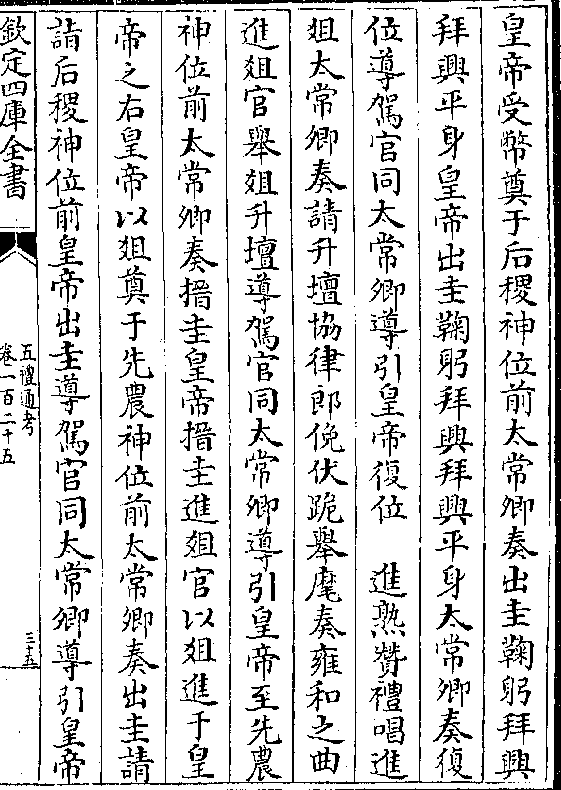 皇帝受幣奠于后稷神位前太常卿奏出圭鞠躬拜興
拜興平身皇帝出圭鞠躬拜興拜興平身太常卿奏復
位導駕官同太常卿導引皇帝復位　進熟贊禮唱進
俎太常卿奏請升壇協律郎俛伏跪舉麾奏雍和之曲
進俎官舉俎升壇導駕官同太常卿導引皇帝至先農
神位前太常卿奏搢圭皇帝搢圭進俎官以俎進于皇
帝之右皇帝以俎奠于先農神位前太常卿奏出圭請
詣后稷神位前皇帝出圭導駕官同太常卿導引皇帝
欽定四庫全書
五禮通考
卷一百二十五
三十五